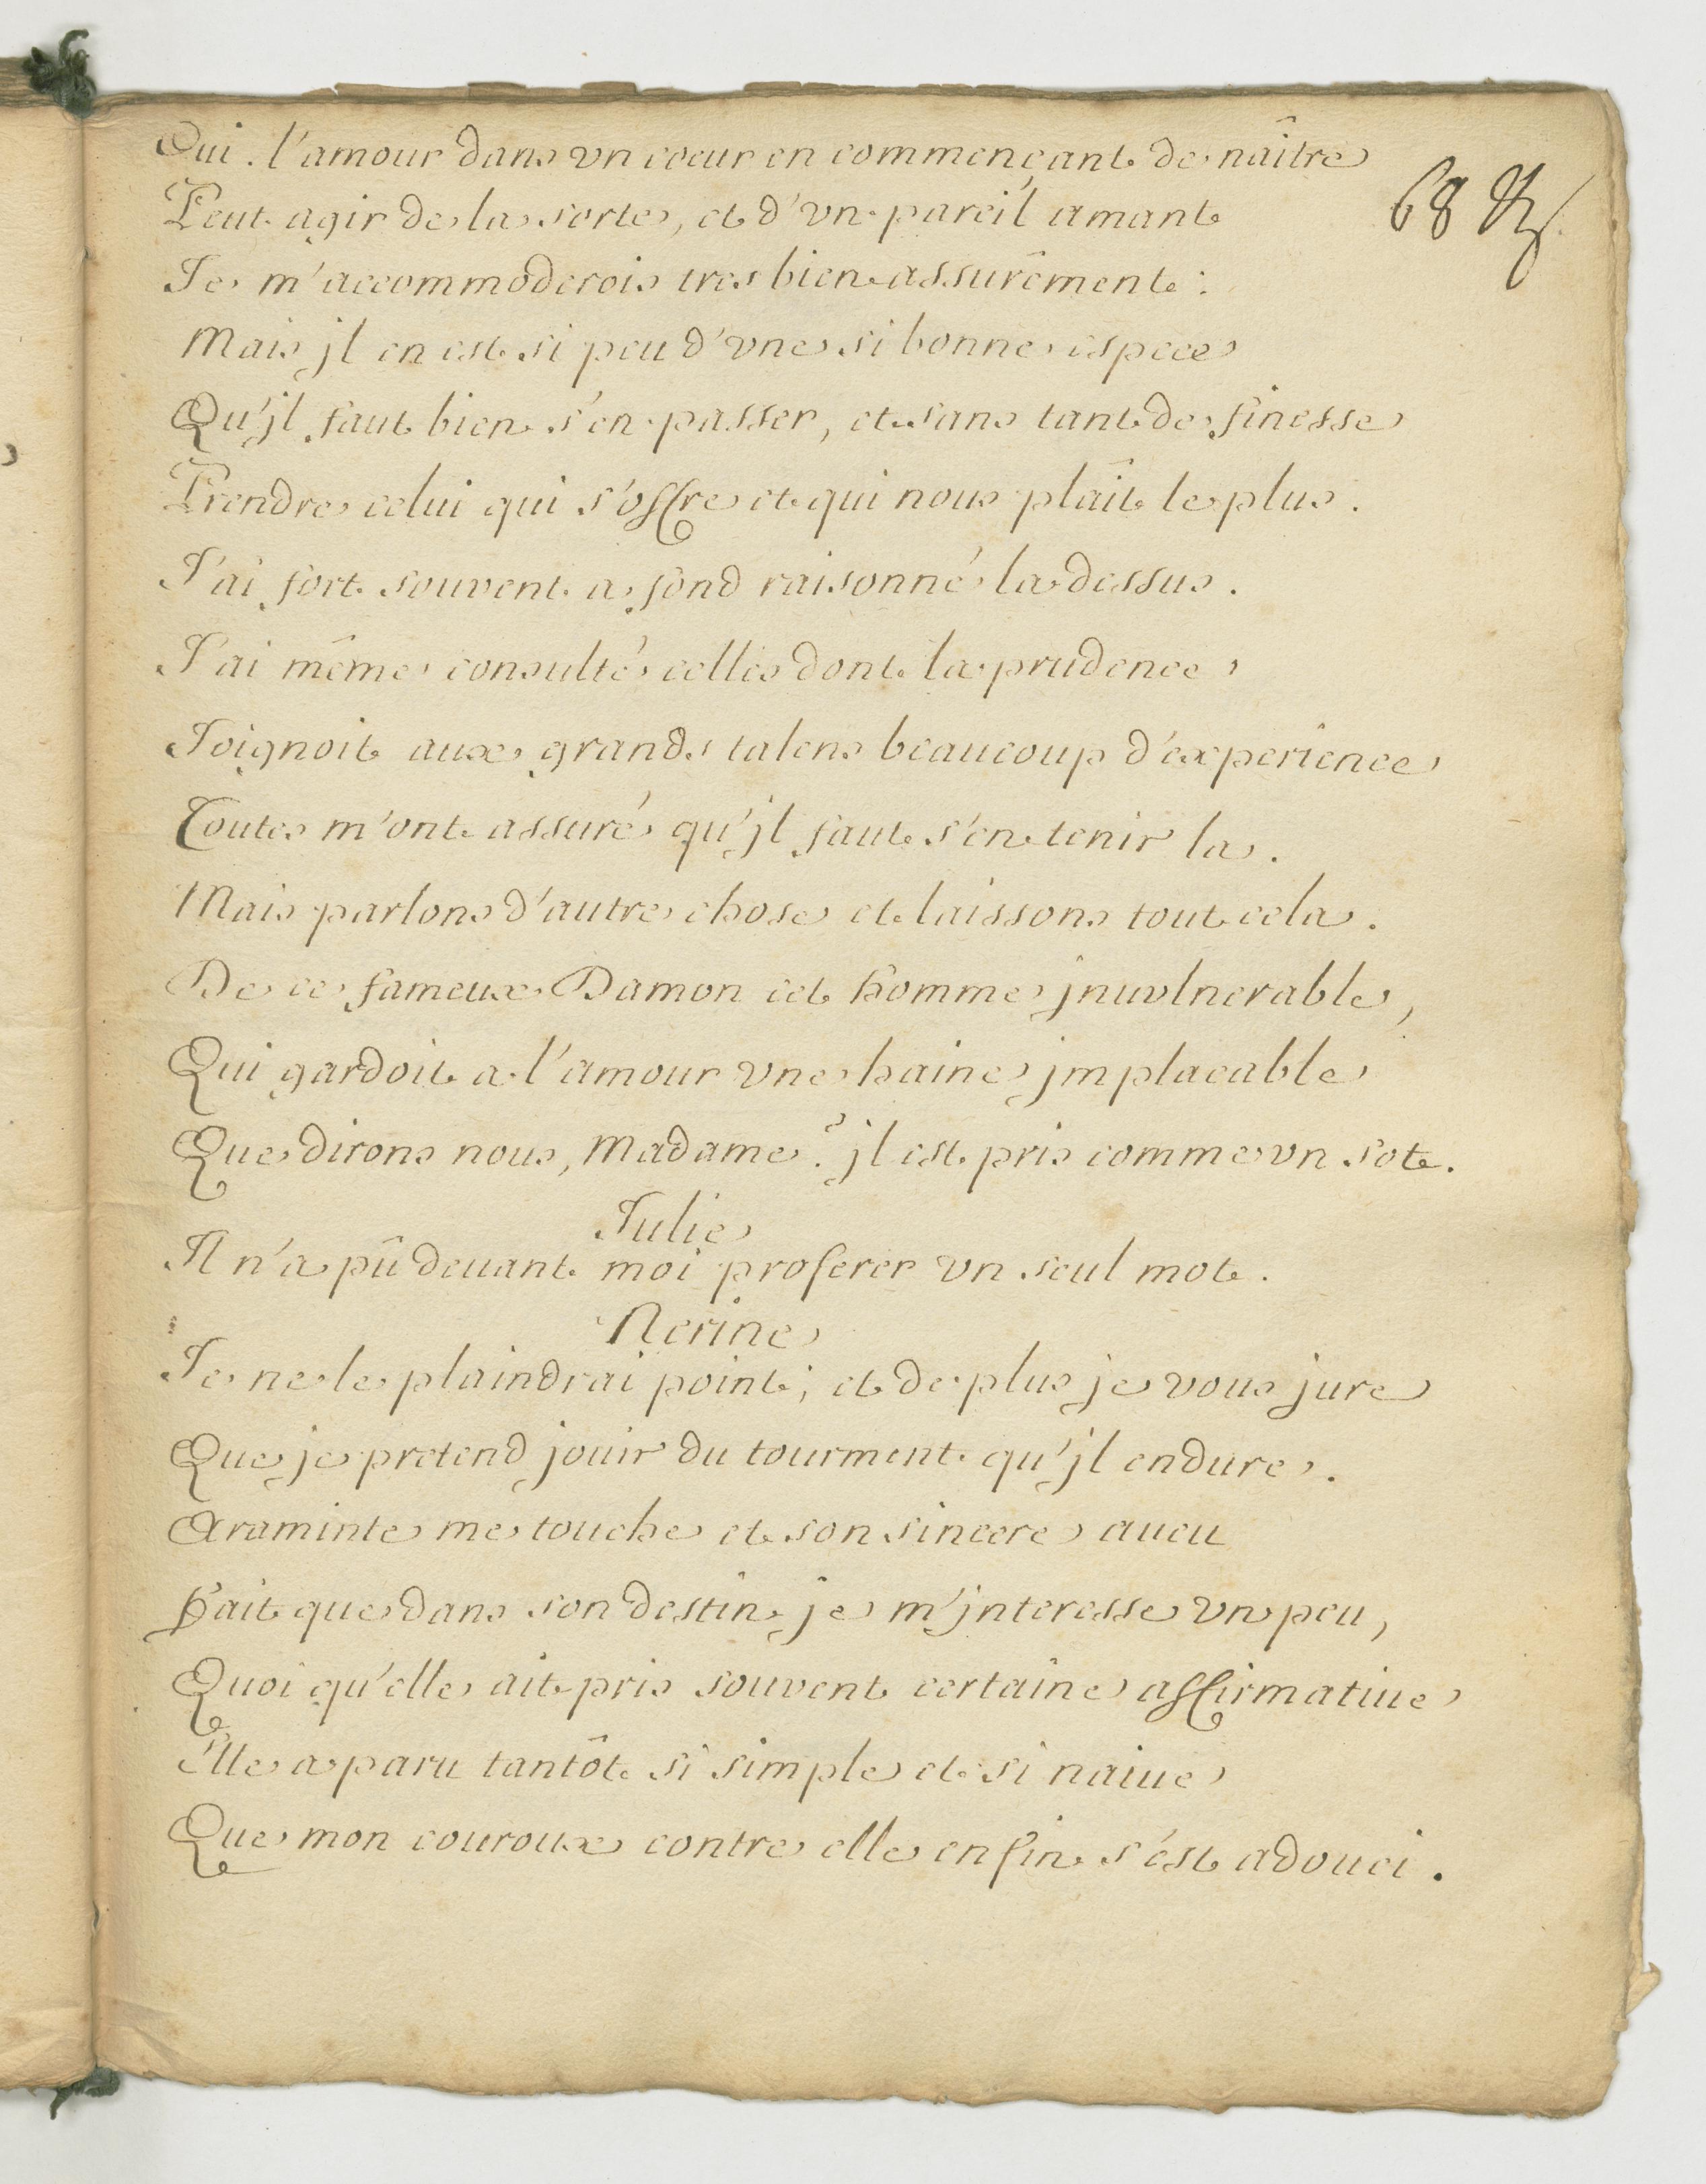 Oui. l'amour dans vn coeur en commençant de naître
Peut agir de la sorte, et d'vn pareil amant
Je m'accommoderois tres bien assurément :
Mais jl en est si peu d'vne si bonne espece
Qu'jl faut bien s'en passer, et sans tant de finesse
Prendre celui qui s'offre et qui nous plaît le plus.
J'ai fort souvent a fond raisonné la dessus.
J'ai même consulté celles dont la prudence
Joignoit aux grands talens beaucoup d'experience
Toutes m'ont assuré qu'jl faut s'en tenir la.
Mais parlons d'autre chose et laissons tout cela.
De ce fameux Damon cet homme jnuulnerable,
Qui gardoit a l'amour vne haine jmplacable
Que dirons nous, Madame ? jl est pris comme vn sot.
Julie
Il n'a pû deuant moi proferer vn seul mot.
Nerine
Je ne le plaindrai point ; et de plus je vous jure
Que je pretend jouir du tourment qu'jl endure.
Araminte me touche et son sincere aueu
Fait que dans son destin je m'jnteresse vn peu,
Quoi qu'elle ait pris souvent certaine affirmatiue
Elle a paru tantôt si simple et si naiue
Que mon couroux contre elle enfin s'est adouci.
68